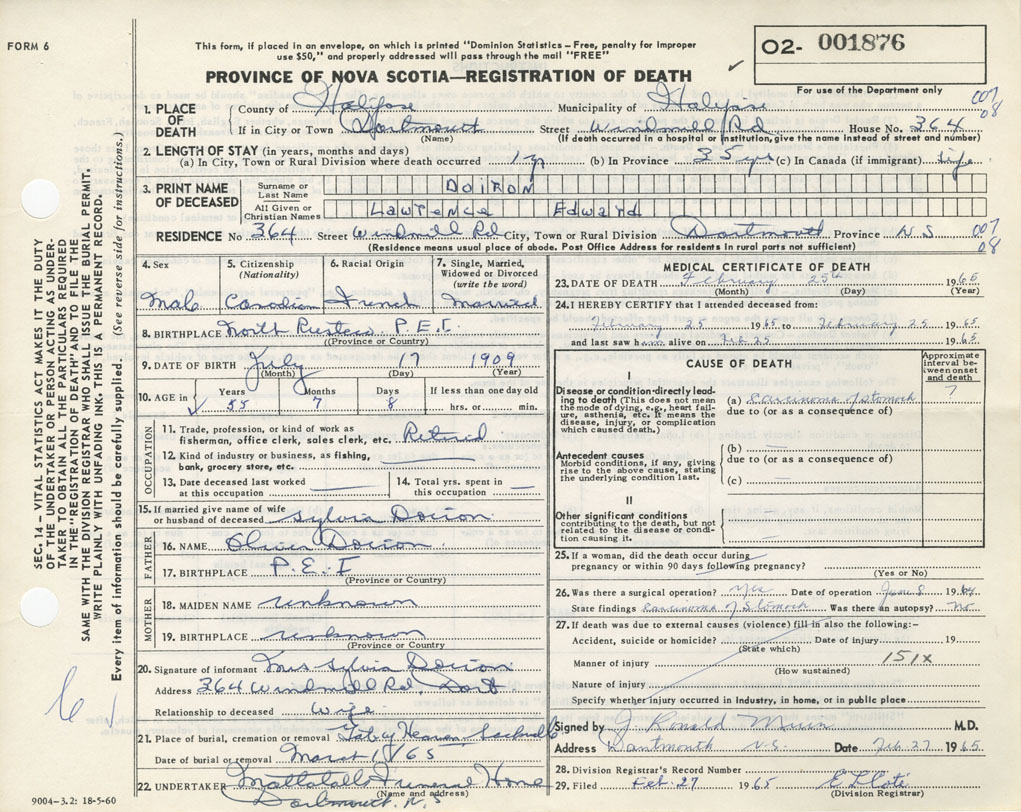 FORM 6
This form, if placed in an envelope, on which is printed "Dominion Statistics – Free, penalty for improper
use $50," and properly addressed will pass through the mail "FREE"
O2- 001876
For use of the Department only
PROVINCE OF NOVA SCOTIA—REGISTRATION OF DEATH
007
08
1. PLACE OF DEATH
County of Halifax Municipality of Halifax
If in City or Town Dartmouth Street Windmill Rd House No. 364
(Name) (If death occurred in a hospital or institution, give the name instead of street and number)
2. LENGTH OF STAY (in years, months and days)
(a) In City, Town or Rural Division where death occurred 1 yr (b) In Province 35 yrs (c) In Canada (if immigrant) life
3. PRINT NAME OF DECEASED
Surname or Last Name DOIRON
All Given or Christian Names Lawrence Edward
RESIDENCE No 364 Street Windmill Rd City, Town or Rural Division Dartmouth Province N S
007
08
(Residence means usual place of abode. Post Office Address for residents in rural parts not sufficient)
4. Sex Male
5. Citizenship (Nationality) Canadian
6. Racial Origin French
7. Single, Married, Widowed or Divorced (write the word) Married
8. BIRTHPLACE North Rustico P.E.I.
(Province or Country)
9. DATE OF BIRTH July 17 1909
(Month) (Day) (Year)
10. AGE in Years 55 Months 7 Days 8 If less than one day old hrs. or min.
OCCUPATION
11. Trade, profession, or kind of work as
fisherman, office clerk, sales clerk, etc. Retired
12. Kind of industry or business, as fishing,
bank, grocery store, etc.
13. Date deceased last worked
at this occupation
14. Total yrs. spent in
this occupation
15. If married give name of wife
or husband of deceased Sylvia Doiron
FATHER
16. NAME Oliver Doiron
17. BIRTHPLACE P.E.I
(Province or Country)
MOTHER
18. MAIDEN NAME unknown
19. BIRTHPLACE unknown
(Province or Country)
20. Signature of informant Mrs Sylvia Doiron
Address 364 Windmill Rd, Dart.
Relationship to deceased Wife
21. Place of burial, cremation or removal
Date of burial or removal March 1 65
22. UNDERTAKER Mattatall Funeral Home
(Name and address)
Dartmouth. N.S
9004–3.2: 18-5-60
MEDICAL CERTIFICATE OF DEATH
23. DATE OF DEATH February 25th 1965
(Month) (Day) (Year)
24. I HEREBY CERTIFY that I attended deceased from:
February 25 1965 to February 25 1965
and last saw him alive on Feb 25 1965
CAUSE OF DEATH
Approximate interval between onset and death
I
Disease or condition directly leading to death (This does not mean the mode of dying, e.g., heart failure, asthenia, etc. It means the disease, injury, or complication which caused death.)
(a) Carcinoma of stomach ?
due to (or as a consequence of)
Antecedent causes
Morbid conditions, if any, giving rise to the above cause, stating the underlying condition last.
(b)
due to (or as a consequence of)
(c)
II
Other significant conditions
contributing to the death, but not related to the disease or condition causing it.
25. If a woman, did the death occur during
pregnancy or within 90 days following pregnancy?
(Yes or No)
26. Was there a surgical operation? Yes Date of operation June 8 1964
State findings Carcinoma of Stomach Was there an autopsy? No
27. If death was due to external causes (violence) fill in also the following:–
Accident, suicide or homicide? Date of injury 19
(State which)
Manner of injury 151X
(How sustained)
Nature of injury
Specify whether injury occurred in Industry, in home, or in public place
Signed by J Ronald M.D.
Address Dartmouth N.S. Date Feb 27 1965
28. Division Registrar's Record Number
29. Filed Feb 27 1965
(Division Registrar)
SEC. 14 – VITAL STATISTICS ACT MAKES IT THE DUTY
OF THE UNDERTAKER OR PERSON ACTING AS UNDER-
TAKER TO OBTAIN ALL THE PARTICULARS REQUIRED
IN THE "REGISTRATION OF DEATH" AND TO FILE THE
SAME WITH THE DIVISION REGISTRAR WHO SHALL ISSUE THE BURIAL PERMIT.
WRITE PLAINLY WITH UNFADING INK. THIS IS A PERMANENT RECORD.
Every item of information should be carefully supplied. (See reverse side for instructions.)